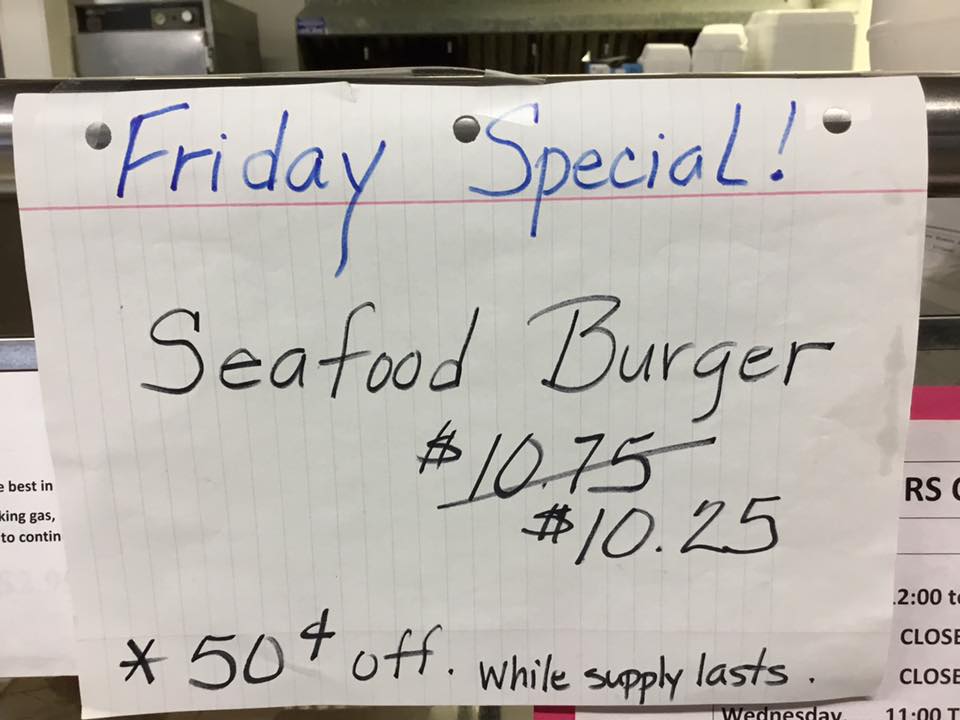 Friday Special!
Seafood Burger
$10.75
$10.25
* 50¢ off. While supply lasts.
e best in
king gas,
to contin
RS
2:00 t
CLOSE
CLOSE
Wednesday 11:00 T